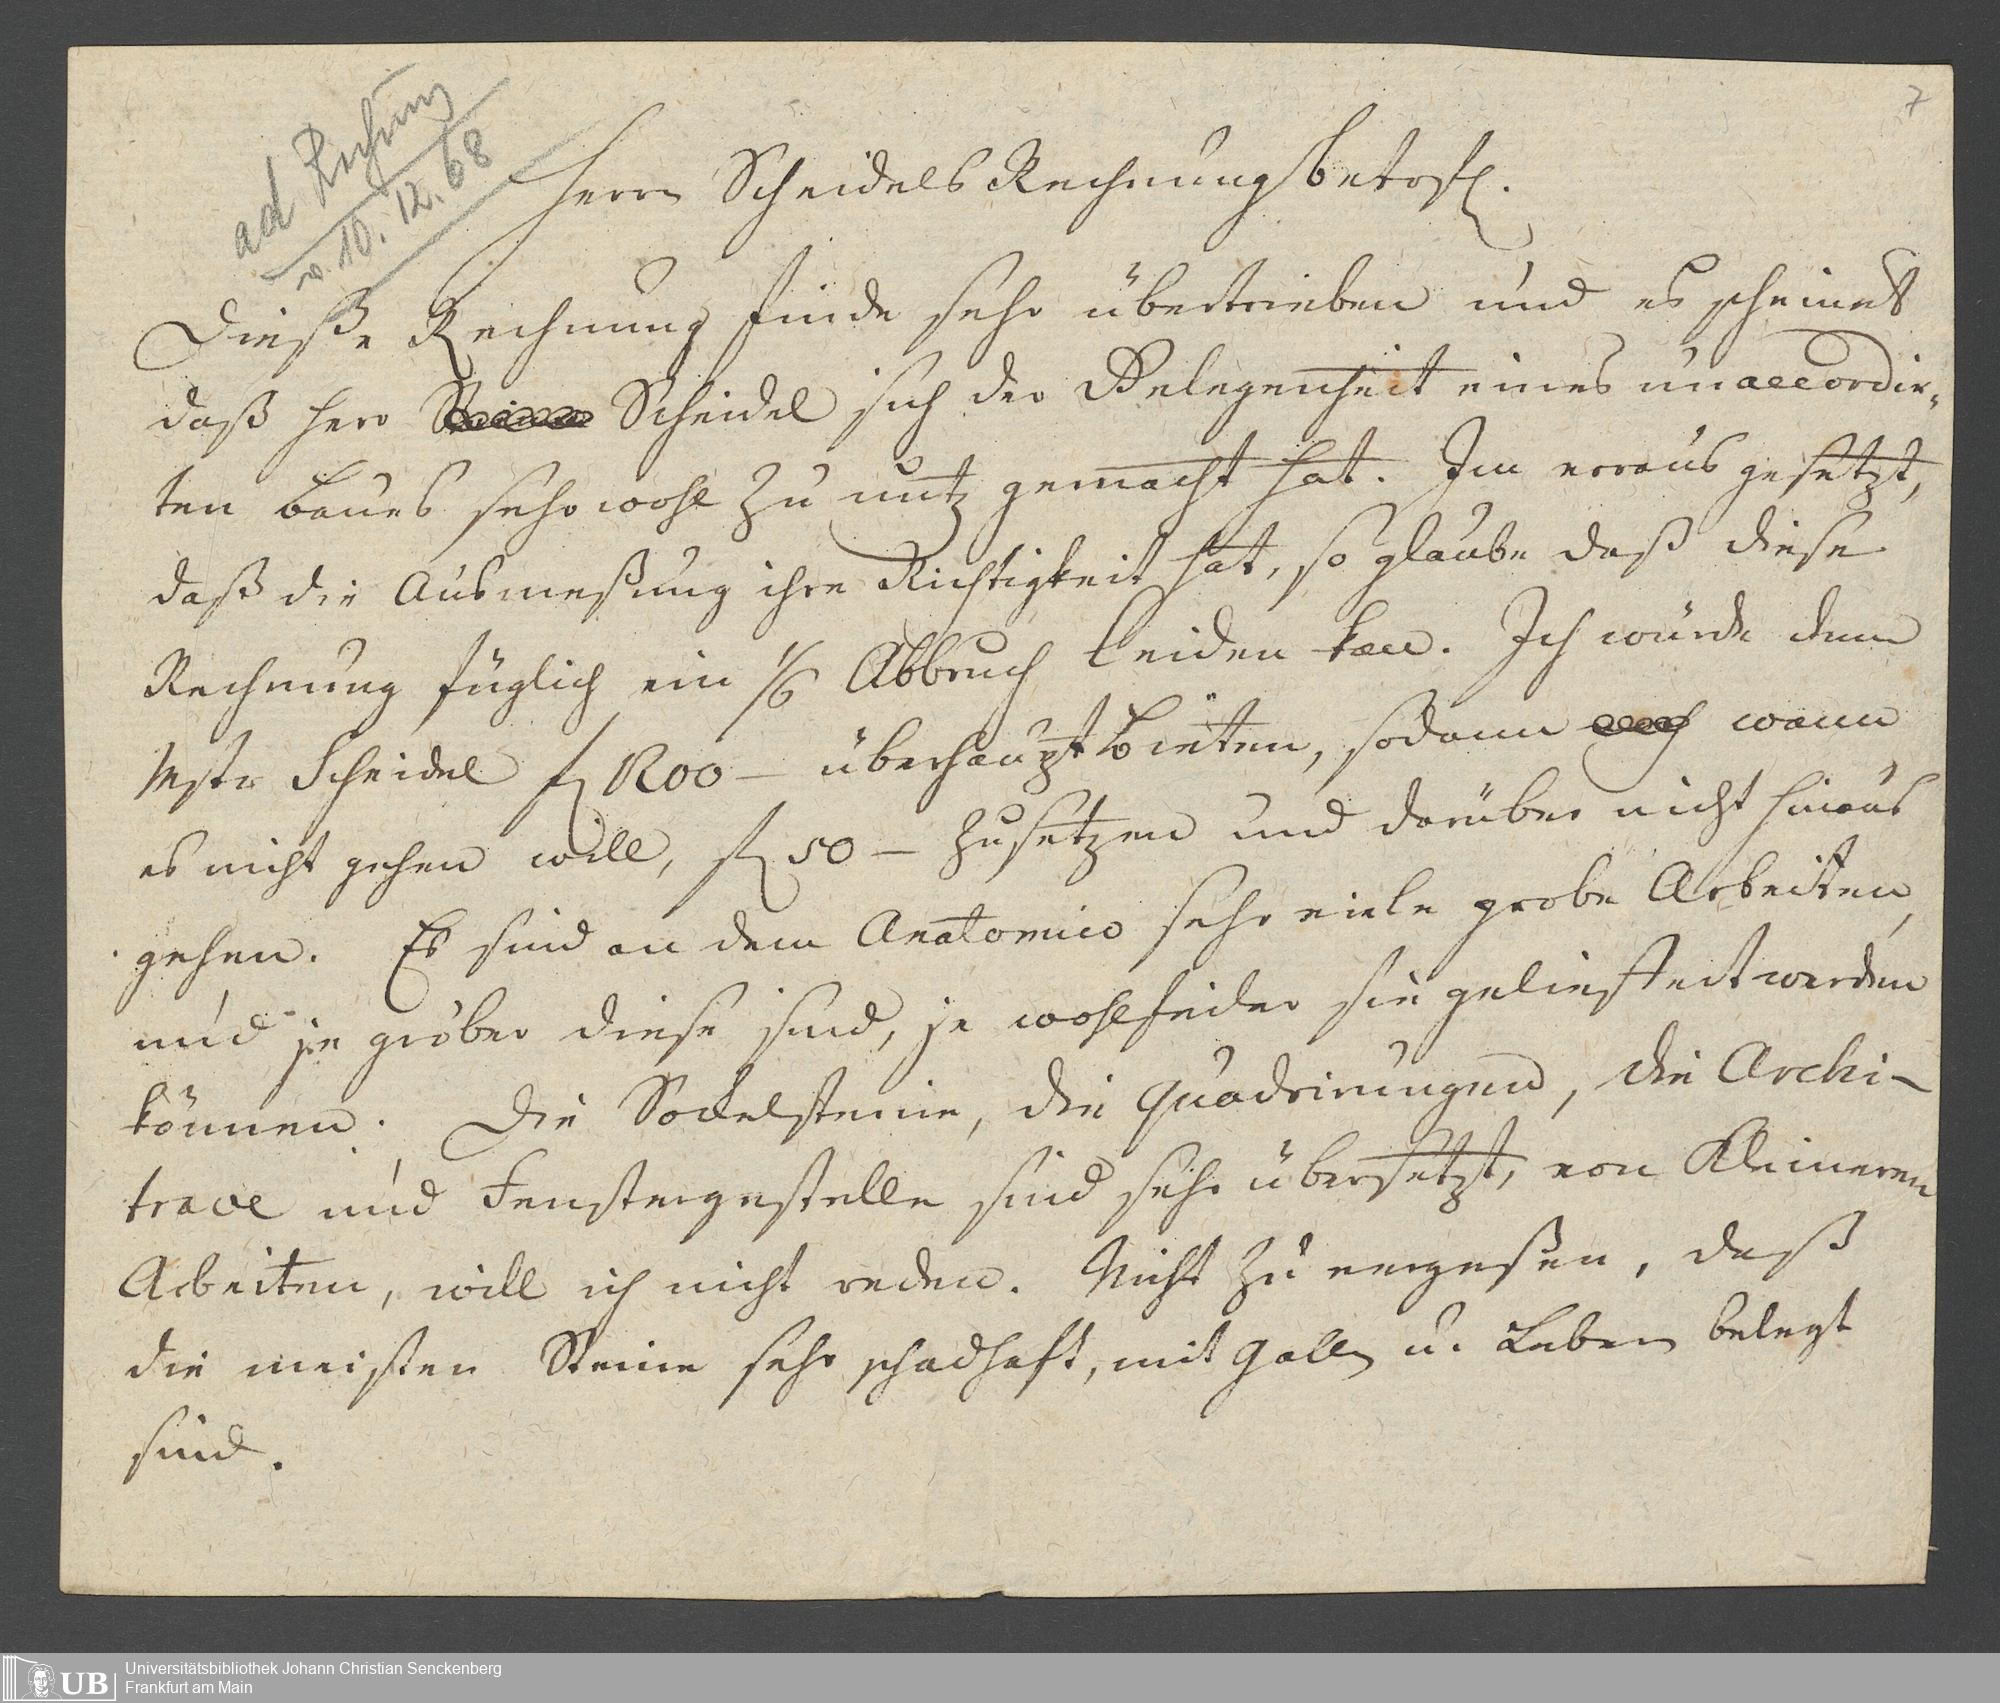 7
ad Rechnung
v. 10. 12. 68
Herrn Scheidels Rechnung betrfl.
Dieße Rechnung finde sehr übertrieben und es scheinet
daß Herr Scheidel sich der Gelegenheit eines unaccordir-
ten Baues sehr wohl zu nutz gemacht hat. Im voraus gesetzt,
daß die Ausmeßung ihre Richtigkeit hat, so glaube daß diese
Rechnung füglich ein 1/6 Abbruch leiden kan. Ich würde dem
Mstr Scheidel f 1200 – überhaupt bieten, sodann wann
es nicht gehen will, f 50 – zusetzen und darüber nicht hinaus
gehen. Es sind an dem Anatomico sehr viele grobe Arbeiten,
und je gröber diese sind, je wohlfeiler sie geliefert werden
können. Die Sockelsteine, die Quadrirungen, die Archi-
trave und Fenstergestelle sind sehr übersetzt, von Kleineren
Arbeiten, will ich nicht reden. Nicht zu vergeßen, daß
die meisten Steine sehr schadhaft, mit Galle u. Leber belegt
sind.
UB
Universitätsbibliothek Johann Christian Senckenberg
Frankfurt am Main